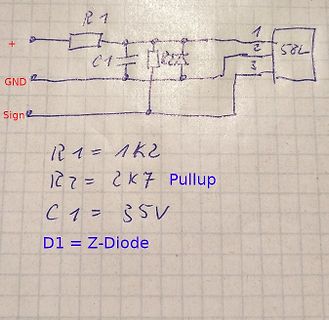 R1
1
+
2
58L
C1
R2
3
GND
Sign
R1 = 1K2
R2 = 2K7 Pullup
C1 = 35V
D1 = Z-Diode